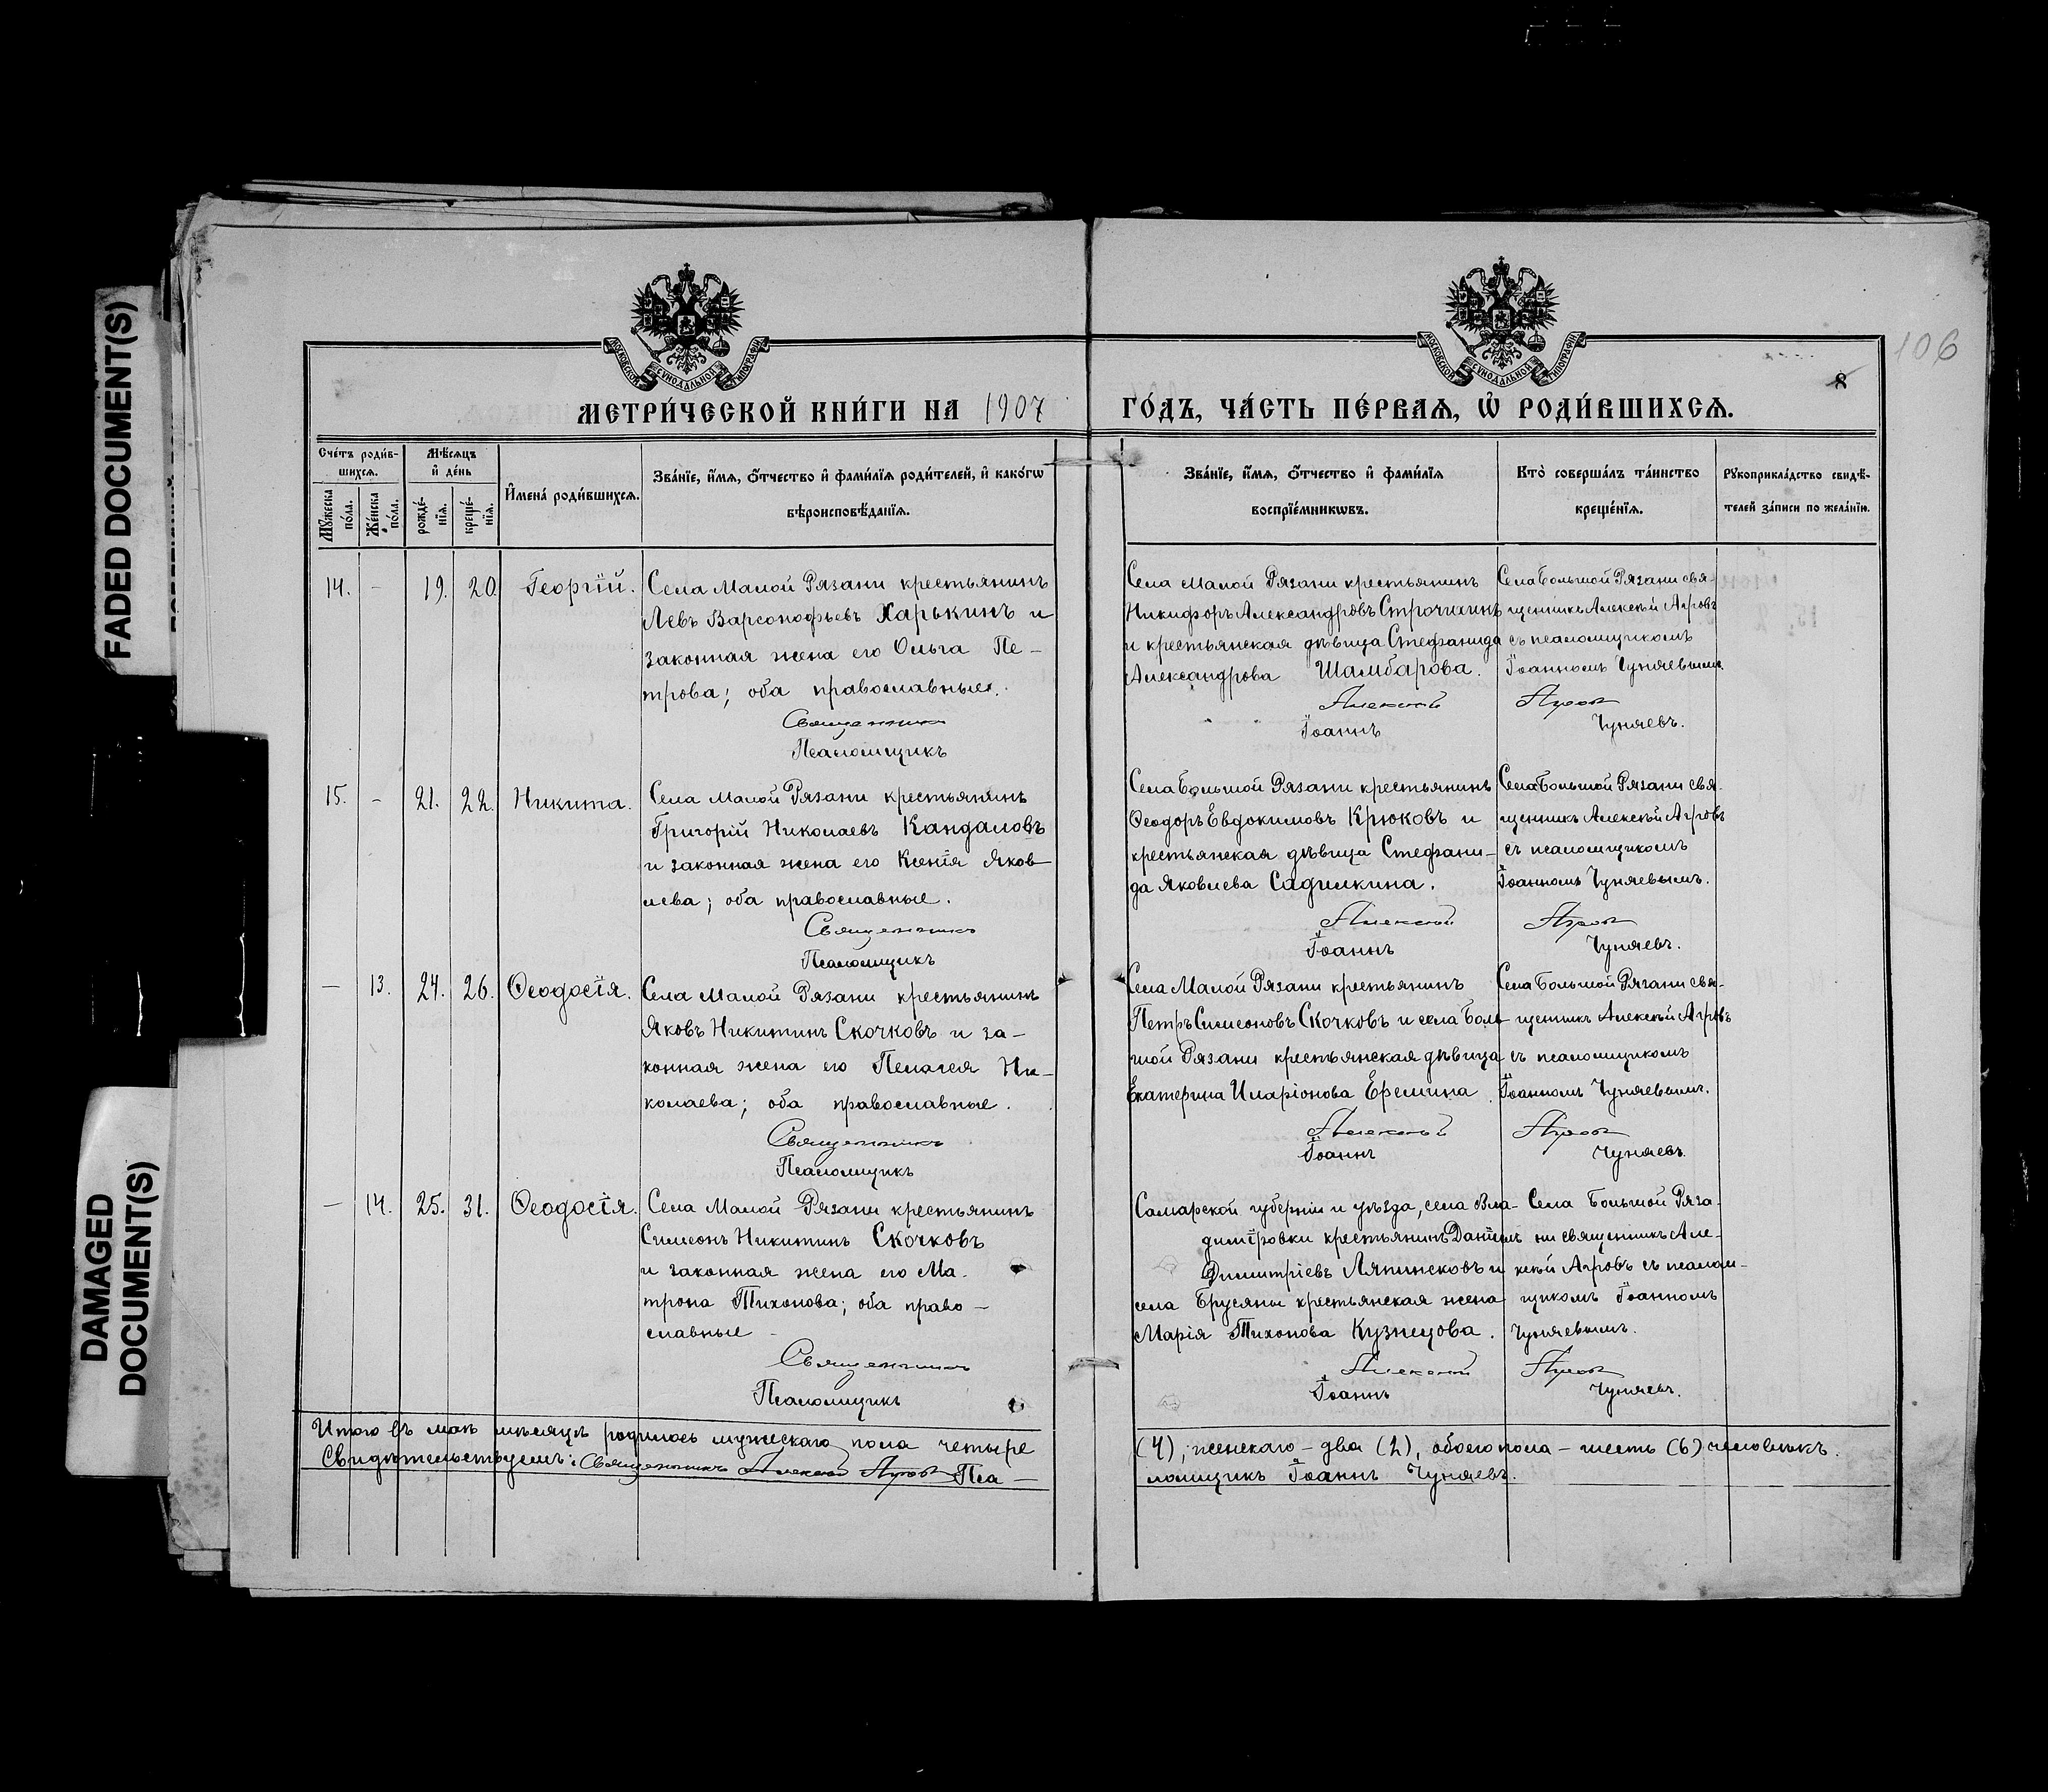 FADED DOCUMENT(S)
DAMAGED
DOCUMENT(S)
106
8
МОСКОВСКОЙ СУНОДАЛЬНОЙ ТИПОГРАФІИ
МОСКОВСКОЙ СУНОДАЛЬНОЙ ТИПОГРАФІИ
МЕТРИ́ЧЕСКОЙ КНИ́ГИ НА 1907 ГО́ДЪ, ЧА́СТЬ ПЕ́РВАѦ, Ѽ РОДИ́ВШИХСѦ.
Сче́тъ роди́в-
шихсѧ.
Мꙋ́жеска
по́ла.
Же́нска
по́ла.
Мѣ́сѧцъ
и҆ де́нь
рожде́-
нїѧ.
креще́-
нїѧ.
И҆мена̀ роди́вшихсѧ.
Зва́нїе, и҆́мѧ, ѻ҆́тчество и҆ фами́лїѧ роди́телей, и҆ како́гѡ
вѣроисповѣ́данїѧ.
Зва́нїе, и҆́мѧ, ѻ҆́тчество и҆ фами́лїѧ
воспрїе́мникѡвъ.
Кто̀ соверша́лъ та́инство
креще́нїѧ.
Рꙋкоприкла́дство свидѣ́-
телей за́писи по жела́нїю.
14. - 19. 20. Георгій.
Села Малой Рязани крестьянинъ
Левъ Варсонофьевъ Харькинъ и
законная жена его Ольга Пе-
трова; оба православные.
Священникъ
Псаломщикъ
Села Малой Рязани крестьянинъ
Никифоръ Александровъ Строчихинъ
и крестьянская дѣвица Стефанида
Александрова Шамбарова.
Алексій
Іоаннъ
Села Большой Рязани свя-
щенникъ Алексѣй Агровъ
съ псаломщикомъ
Іоанномъ Чуняевымъ.
Агровъ
Чуняевъ.
15. - 21. 22. Никита.
Села Малой Рязани крестьянинъ
Григорій Николаевъ Кандаловъ
и законная жена его Ксенія Яков-
лева; оба православные.
Священникъ
Псаломщикъ
Села Большой Рязани крестьянинъ
Ѳеодоръ Евдокимовъ Крюковъ и
крестьянская дѣвица Стефани-
да Яковлева Садилкина.
Алексій
Іоаннъ
Села Большой Рязани свя-
щенникъ Алексѣй Агровъ
съ псаломщикомъ
Іоанномъ Чуняевымъ.
Агровъ
Чуняевъ.
- 13. 24. 26. Ѳеодосія.
Села Малой Рязани крестьянинъ
Яковъ Никитинъ Скочковъ и за-
конная жена его Пелагея Ни-
колаева; оба православные.
Священникъ
Псаломщикъ
Села Малой Рязани крестьянинъ
Петръ Симеоновъ Скочковъ и села Боль-
шой Рязани крестьянская дѣвица
Екатерина Иларіонова Еремина.
Алексій
Іоаннъ
Села Большой Рязани свя-
щенникъ Алексѣй Агровъ
съ псаломщикомъ
Іоанномъ Чуняевымъ.
Агровъ
Чуняевъ.
- 14. 25. 31. Ѳеодосія.
Села Малой Рязани крестьянинъ
Симеонъ Никитинъ Скочковъ
и законная жена его Ма-
трона Тихонова; оба право-
славные
Священникъ
Псаломщикъ
Самарской губерніи и уѣзда, села Вла-
диміровки крестьянинъ Даніилъ
Димитріевъ Ляпинсковъ и
села Брусяны крестьянская жена
Марія Тихонова Кузнецова.
Алексій
Іоаннъ
Села Большой Ряза-
ни священникъ Але-
ксѣй Агровъ съ псалом-
щикомъ Іоанномъ
Чуняевымъ.
Агровъ
Чуняевъ.
Итого въ маѣ мѣсяцѣ родилось мужескаго пола четыре (4), женскаго - два (2), обоего пола - шесть (6) человѣкъ.
Свидѣтельствуемъ: Священникъ Алексій Агровъ Пса- ломщикъ Іоаннъ Чуняевъ.